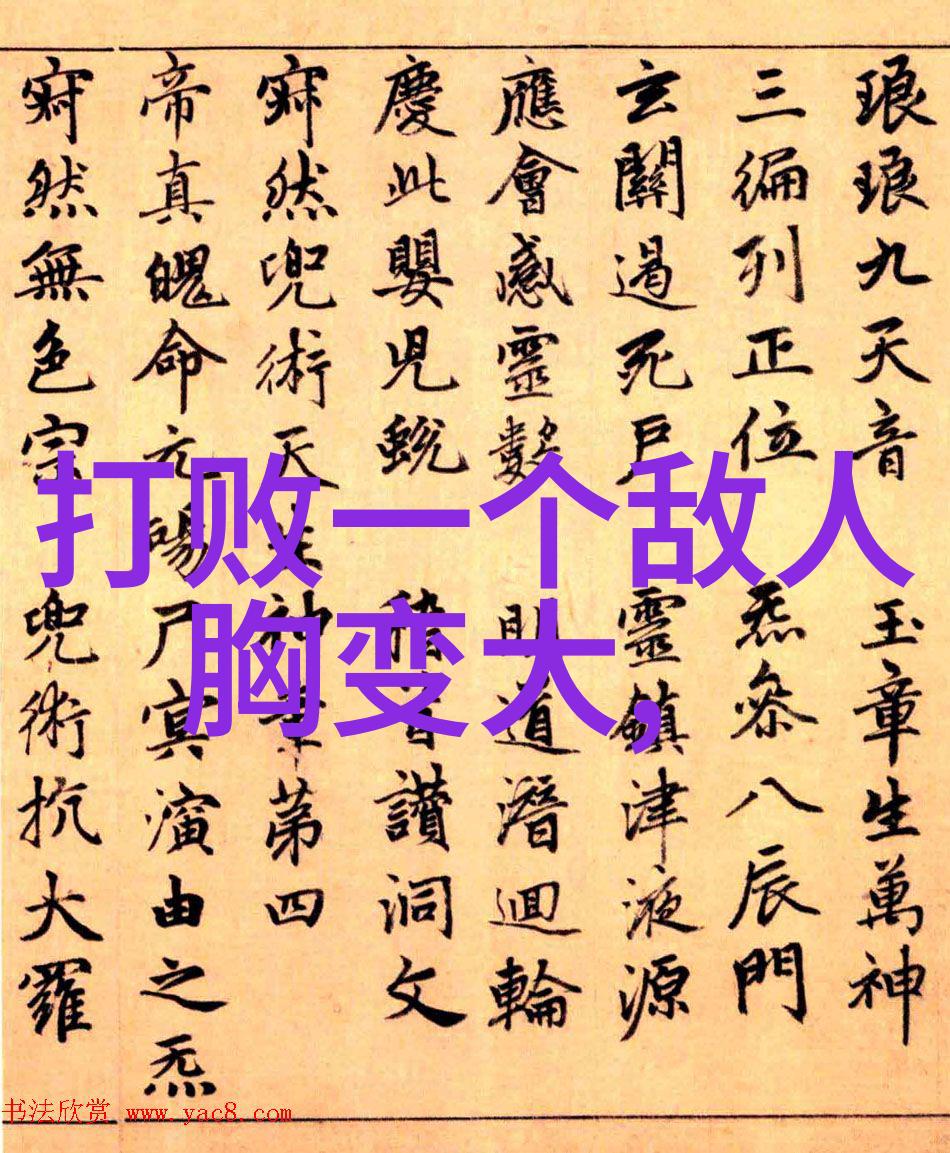 琅琅九天音 玉章生萬神
三編列正位 炁參八辰門
玄關過死戶 靈鎮津液源
應會感靈數 明道潛迴輪
慶此嬰兒蛻 讚洞文
寂然兜術天 神章第四
帝真魄命元 陽尸冥演由之炁
寂然無色宗 兜術抗大羅
打败一个敌人
胸变大,
书法欣赏 www.yac8.com